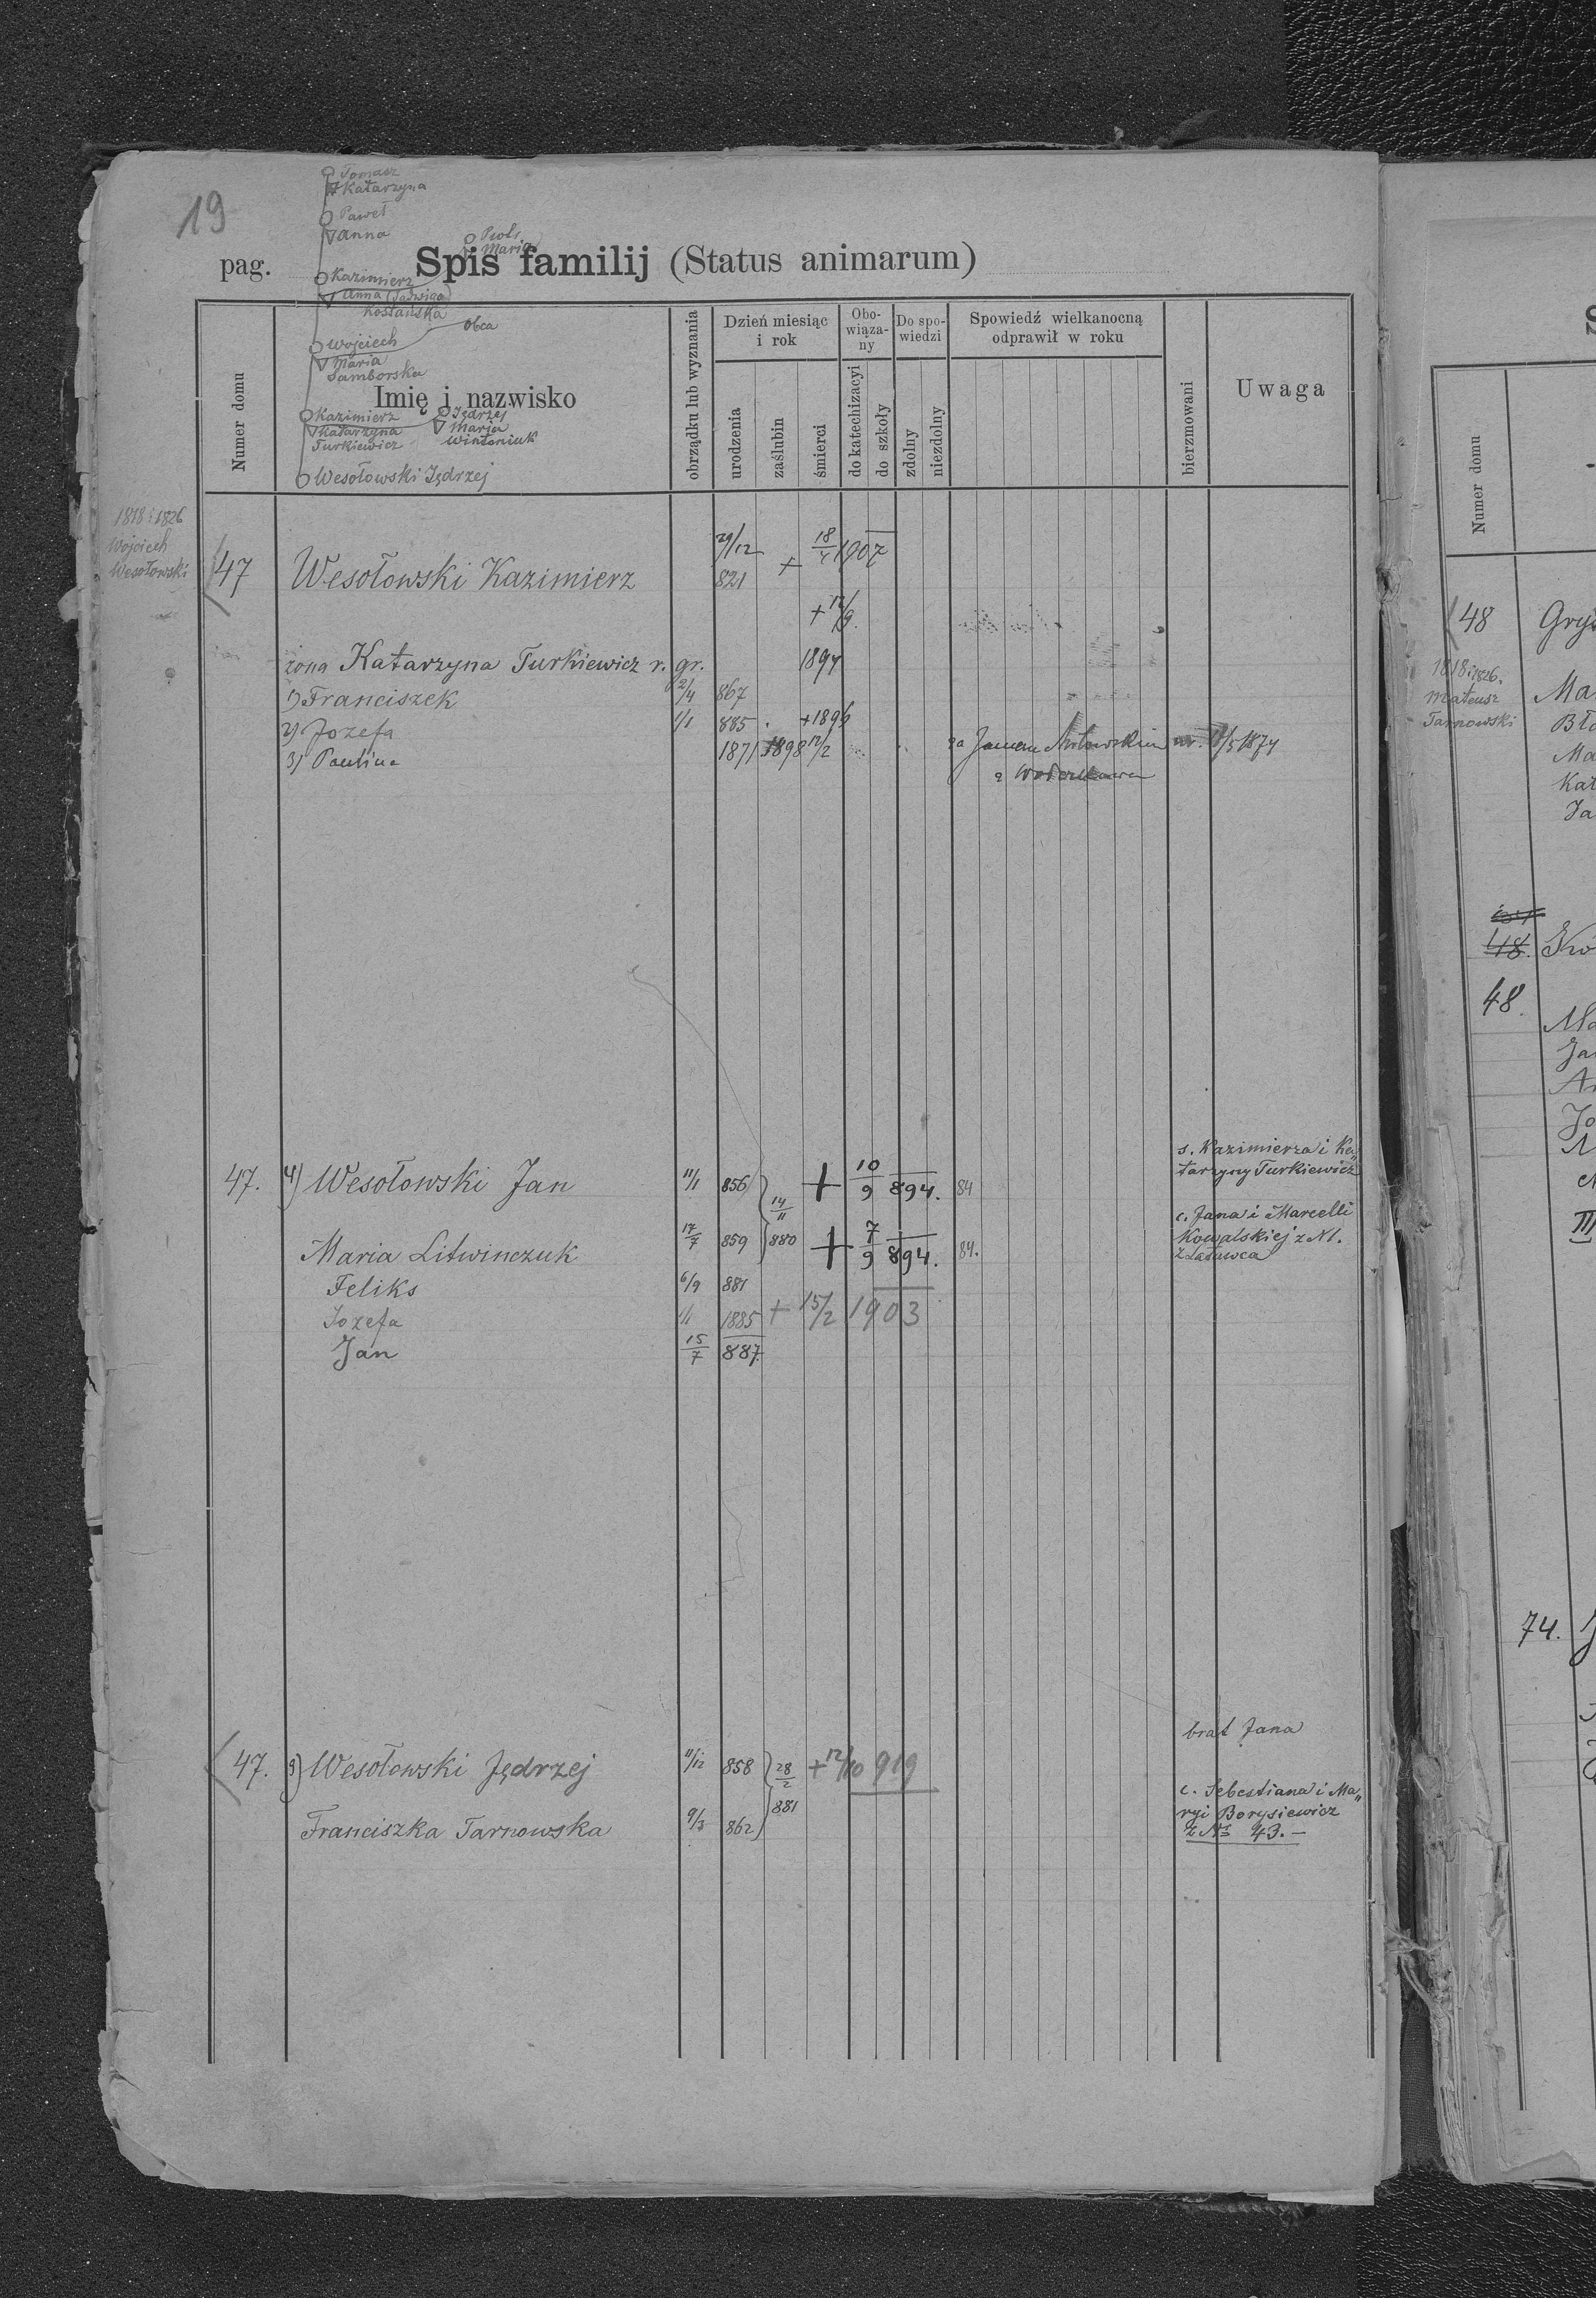 19
Tomasz
Katarzyna
Paweł
Anna
Piotr
Maria
pag. Spis familij (Status animarum)
Kazimierz
Anna (Jadwiga)
Kostańska
obca
Wojciech
Maria
Samborska
Kazimierz
Katarzyna
Turkiewicz
Jędrzej
Maria
Wintoniuk
Wesołowski Jędrzej
Numer domu
Imię i nazwisko
obrządku lub wyznania
Dzień miesiąc
i rok
urodzenia
zaślubin
śmierci
Obo-
wiąza-
ny
do katechizacyi
do szkoły
Do spo-
wiedzi
zdolny
niezdolny
Spowiedź wielkanocną
odprawił w roku
bierzmowani
Uwaga
1818 i 1826
Wojciech
Wesołowski
47 Wesołowski Kazimierz 29/12 821 + 18/4 1907
+ 12/9.
żona Katarzyna Turkiewicz r. gr. 1894
1) Franciszek 2/4 867
2) Jozefa 1/1 885 +1896
3) Paulina 1871 1898 12/2 za Janem
47. 4) Wesołowski Jan 11/1 856 14/11 880 + 10/9 894. 84
s. Kazimierza i Ka„
tarzyny Turkiewicz
Maria Litwinczuk 17/7 859 + 7/9 894. 84.
c. Jana i Marcelli
Kowalskiej z N1.
Feliks 6/9 881
Jozefa 1/1 1885 + 15/2 1903
Jan 15/7 887.
brat Jana
47. Wesołowski Jędrzej 11/12 858 28/2 881 + 12/10 919
Franciszka Tarnowska 9/3 862
c. Sebestiana i Ma„
ryi Borysiewicz
z No 43.–
Numer domu
48
1818 i 1826.
Mateusz
Tarnowski
48.
48.
74.